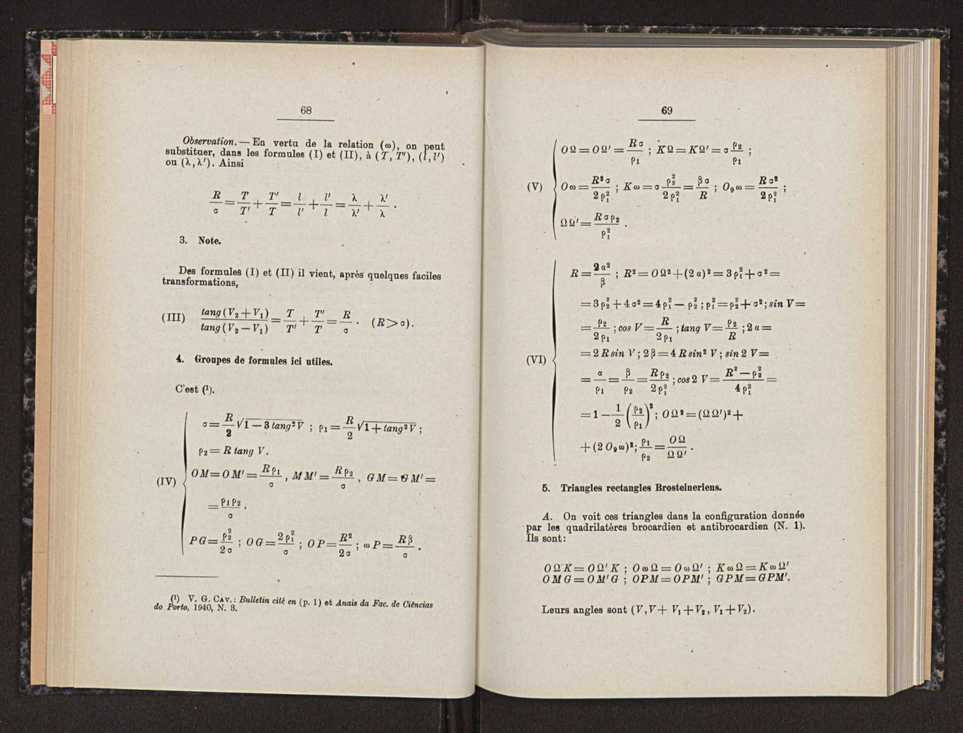 68
Observation. — En vertu de la relation (ω), on peut
substituer, dans les formules (I) et (II), à (T, T'), (l, l')
ou (λ, λ'). Ainsi
R/σ = T/T' + T'/T = l/l' + l'/l = λ/λ' + λ'/λ .
3. Note.
Des formules (I) et (II) il vient, après quelques faciles
transformations,
(III) tang (V₂ + V₁) / tang (V₂ — V₁) = T/T' + T'/T = R/σ . (R > σ).
4. Groupes de formules ici utiles.
C'est (¹).
(IV)
σ = R/2 √(1 — 3 tang² V) ; ρ₁ = R/2 √(1 + tang² V) ;
ρ₂ = R tang V.
OM = OM' = Rρ₁/σ , MM' = Rρ₂/σ , GM = GM' =
= ρ₁ρ₂/σ .
PG = ρ₂²/2σ ; OG = 2ρ₁²/σ ; OP = R²/2σ ; ωP = Rβ/σ .
(¹) V. G. CAV. : Bulletin cité en (p. 1) et Anais da Fac. de Ciências
do Porto, 1940, N. 3.
69
(V)
OΩ = OΩ' = Rσ/ρ₁ ; KΩ = KΩ' = σ ρ₂/ρ₁ ;
Oω = R²σ/2ρ₁² ; Kω = σ ρ₂²/2ρ₁² = βσ/R ; O₉ω = Rσ²/2ρ₁² ;
ΩΩ' = Rσρ₂/ρ₁² .
(VI)
R = 2α²/β ; R² = OΩ² + (2α)² = 3ρ₁² + σ² =
= 3ρ₂² + 4σ² = 4ρ₁² — ρ₂² ; ρ₁² = ρ₂² + σ² ; sin V =
= ρ₂/2ρ₁ ; cos V = R/2ρ₁ ; tang V = ρ₂/R ; 2α =
= 2 R sin V ; 2β = 4 R sin² V ; sin 2 V =
= α/ρ₁ = β/ρ₂ = Rρ₂/2ρ₁² ; cos 2 V = (R² — ρ₂²)/4ρ₁² =
= 1 — 1/2 (ρ₂/ρ₁)² ; OΩ² = (ΩΩ')² +
+ (2 O₉ω)² ; ρ₁/ρ₂ = OΩ/ΩΩ' .
5. Triangles rectangles Brosteineriens.
A. On voit ces triangles dans la configuration donnée
par les quadrilatères brocardien et antibrocardien (N. 1).
Ils sont:
OΩK = OΩ'K ; OωΩ = OωΩ' ; KωΩ = KωΩ'
OMG = OM'G ; OPM = OPM' ; GPM = GPM'.
Leurs angles sont (V, V + V₁ + V₂, V₁ + V₂).